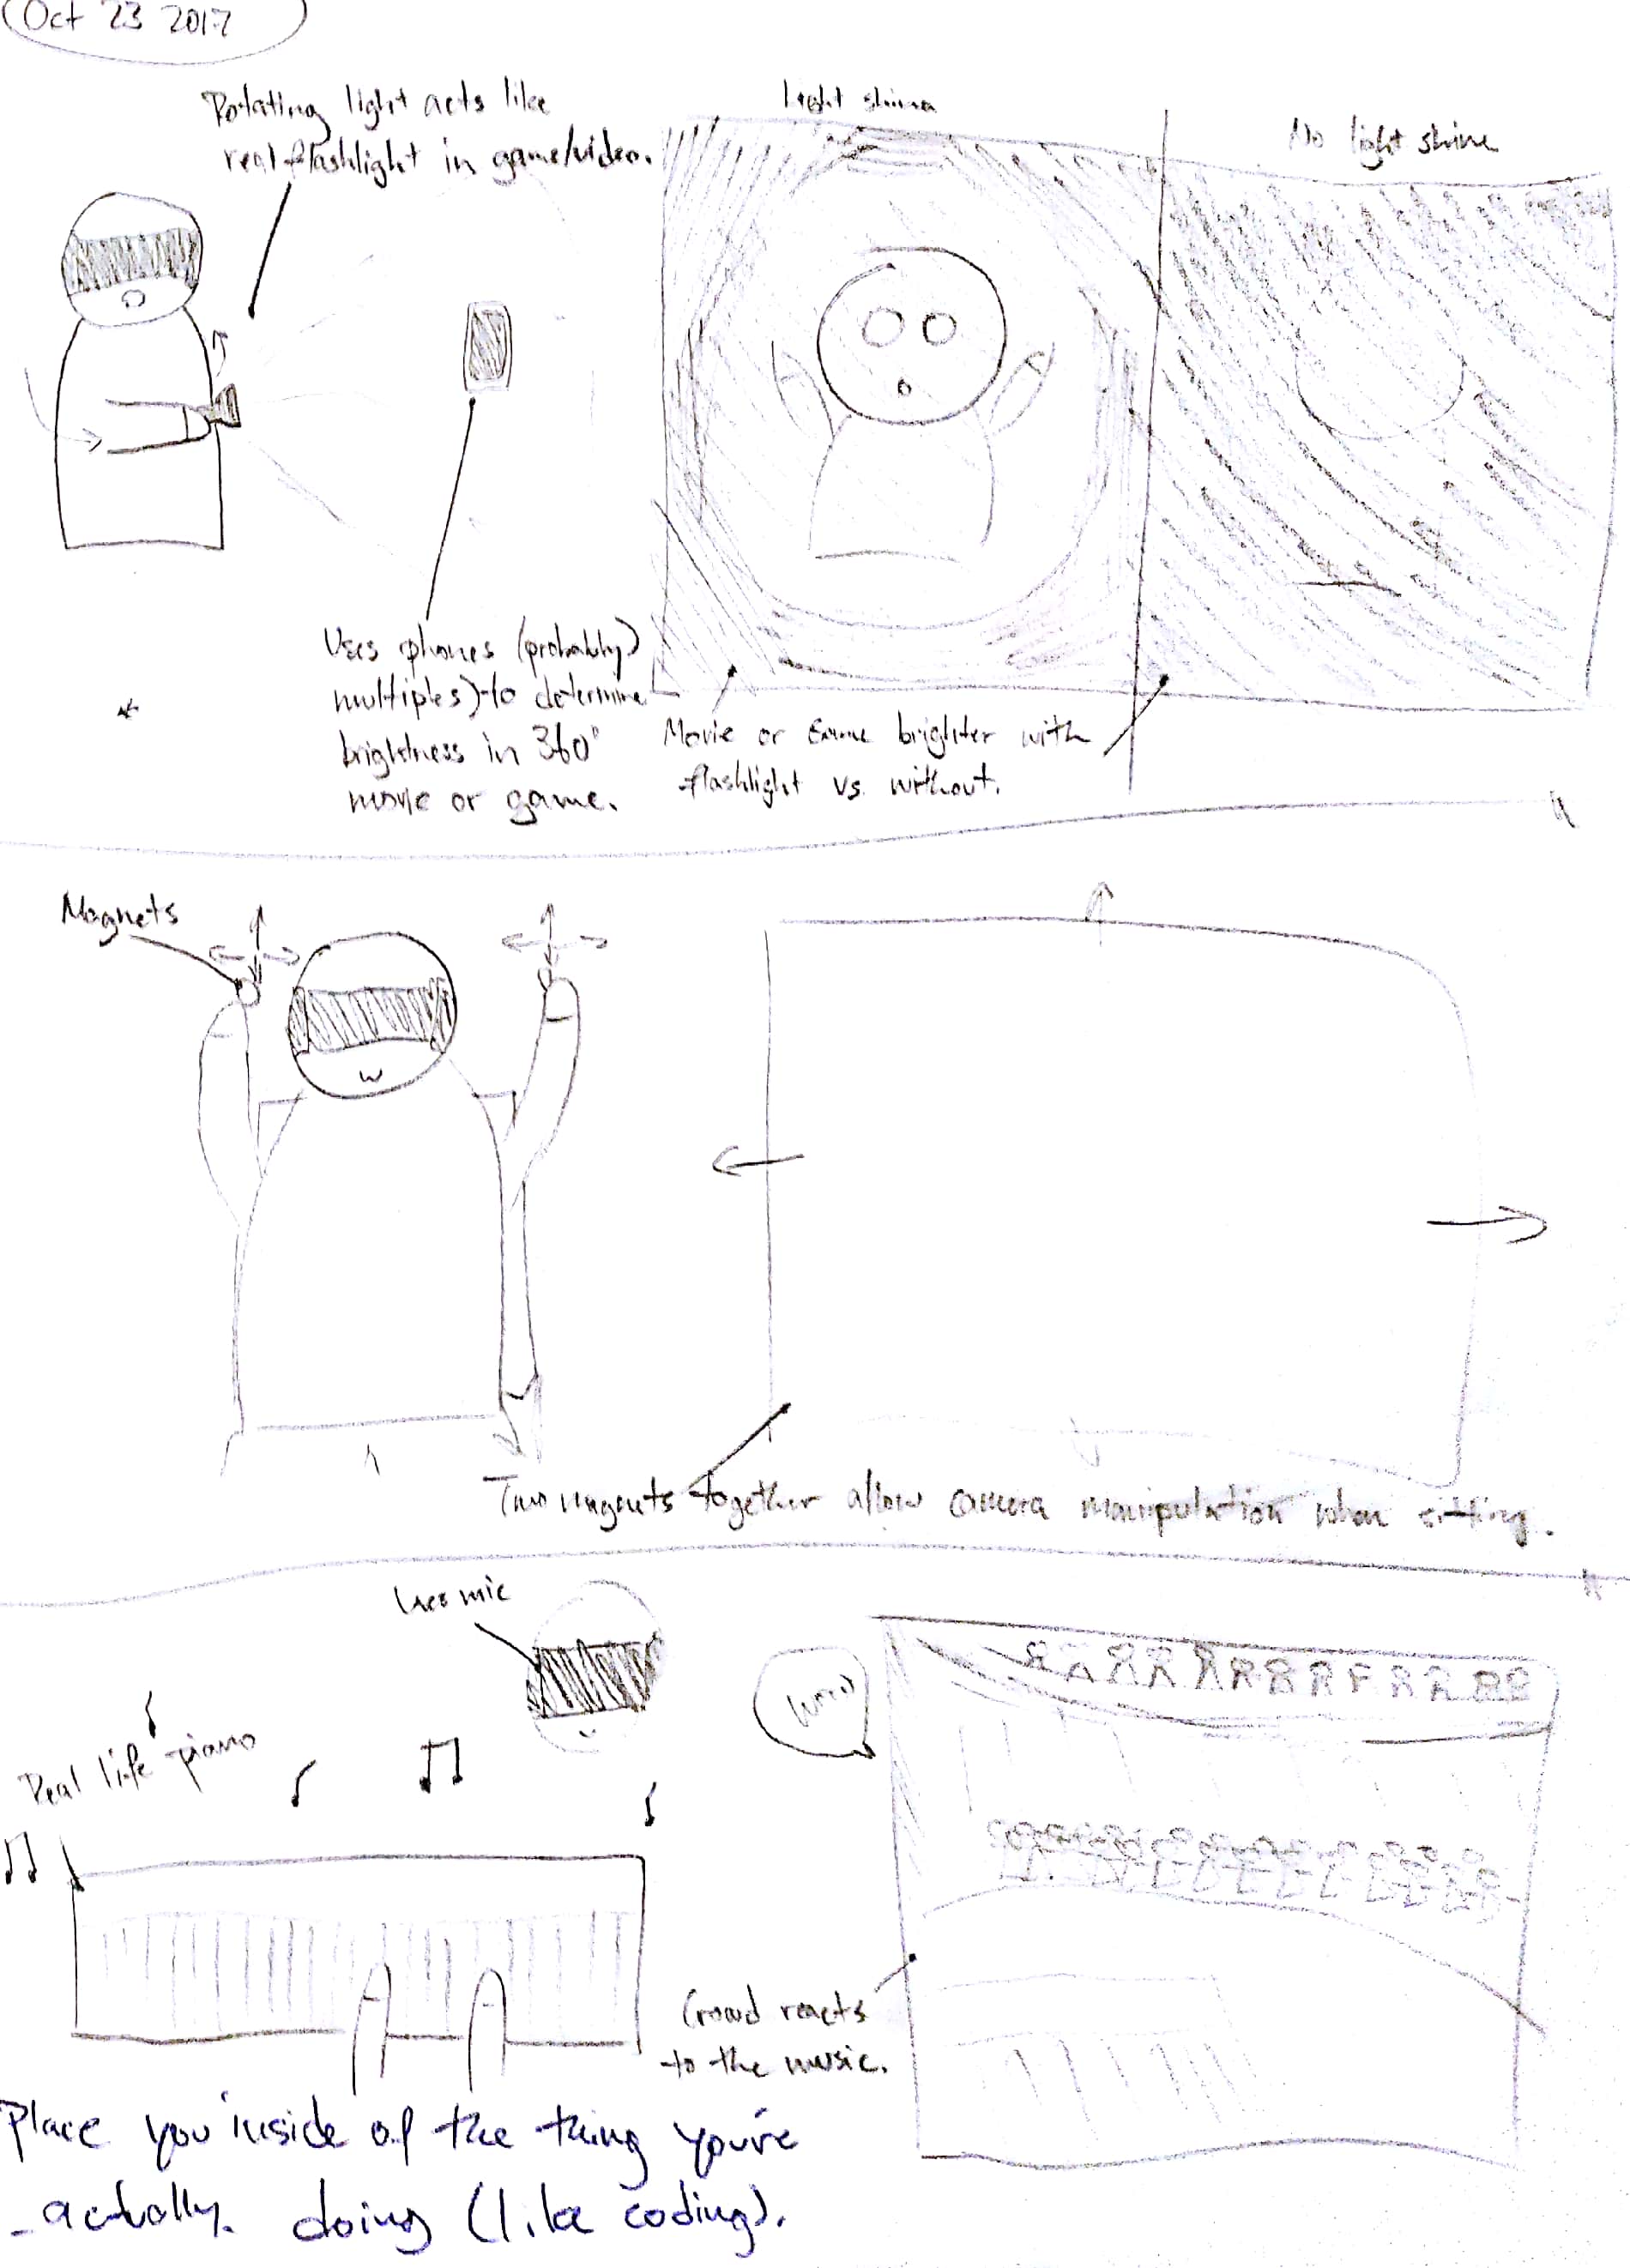 Oct 23 2017
Rotating light acts like
real flashlight in game/video.
Light shine
No light shine
Uses phones (probably
multiples) to determine
brightness in 360°
movie or game.
Movie or Game brighter with
flashlight vs. without.
Magnets
Two magnets together allow camera manipulation when sitting.
Uses mic
Real life piano
Crowd reacts
to the music.
Place you inside of the thing you're
actually doing (like coding).